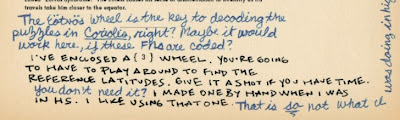 travels take him closer to the equator.
The Eötvös wheel is the key to decoding the
puzzles in Coriolis, right? Maybe it would
work here, if these FNs are coded?
I'VE ENCLOSED A {?} WHEEL. YOU'RE GOING
TO HAVE TO PLAY AROUND TO FIND THE
REFERENCE LATITUDES. GIVE IT A SHOT IF YOU HAVE TIME.
You don't need it? I MADE ONE BY HAND WHEN I WAS
IN HS. I LIKE USING THAT ONE. That is so not what I
was doing in hig